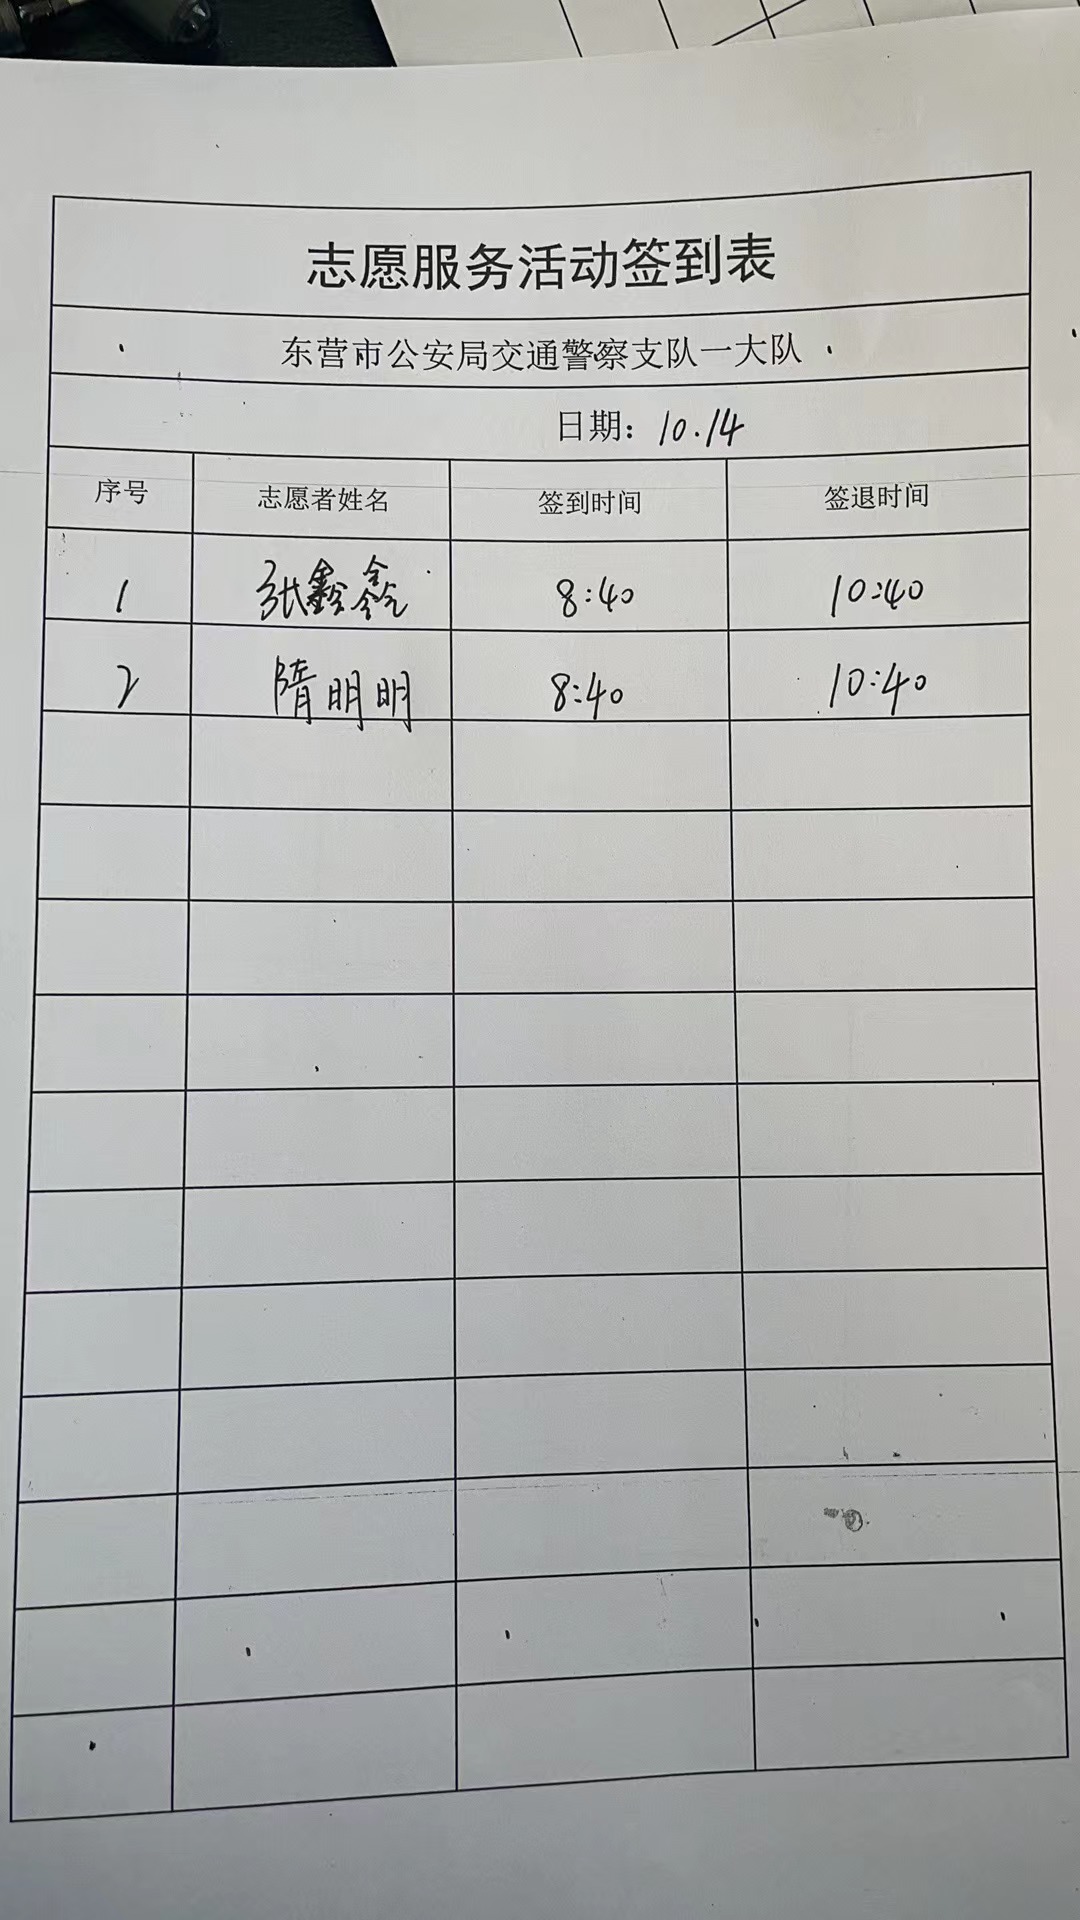 志愿服务活动签到表
东营市公安局交通警察支队一大队
日期：10.14
序号 志愿者姓名 签到时间 签退时间
1 张鑫鑫 8:40 10:40
2 隋明明 8:40 10:40